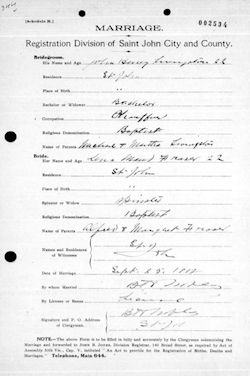 (Schedule B.)
002534
MARRIAGE.
Registration Division of Saint John City and County.
Bridegroom.
His Name and Age John Henry Livingston 22
Residence St. John
Place of Birth "
Bachelor or Widower Bachelor
Occupation Chauffeur
Religious Denomination Baptist
Name of Parents & Martha Livingston
Bride.
Her Name and Age Lena Maud Fraser 22
Residence St. John
Place of Birth "
Spinster or Widow Spinster
Religious Denomination Baptist
Name of Parents Alfred & Margaret Fraser
Names and Residences
of Witnesses
Date of Marriage Sept. 28.
By whom Married
By License or Banns License
Signature and P. O. Address
of Clergyman.
NOTE.—The above Form is to be filled in fully and accurately by the Clergyman solemnizing the
Marriage and forwarded to John B. Jones, Division Registrar, 140 Broad Street, as required by Act of
Assembly 50th Vic., Cap. V; intituled "An Act to provide for the Registration of Births, Deaths and
Marriages." Telephone, Main 644.